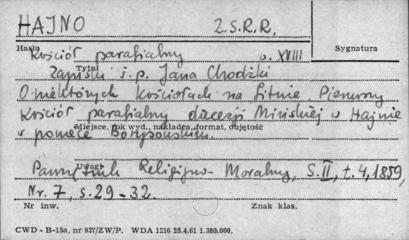 HAJNO Z.S.R.R.
Hasło Kościół parafialny p. XVIII Sygnatura
Tytuł Zapiski ś.p. Jana Chodźki
O niektórych kościołach na Litwie Pierwszy
Kościół parafialny diecezji Mińskiej w Hajnie
Miejsce, rok wyd., nakładca, format, objętość
w powiecie Borysowskim.
Uwagi
Pamiętnik Religijno-Moralny, S. II, t. 4, 1859,
Nr. 7, s. 29-32.
Nr inw. Znak klas.
CWD - B-15a, nr 937/ZW/P. WDA 1216 25.4.61 1.380.000.